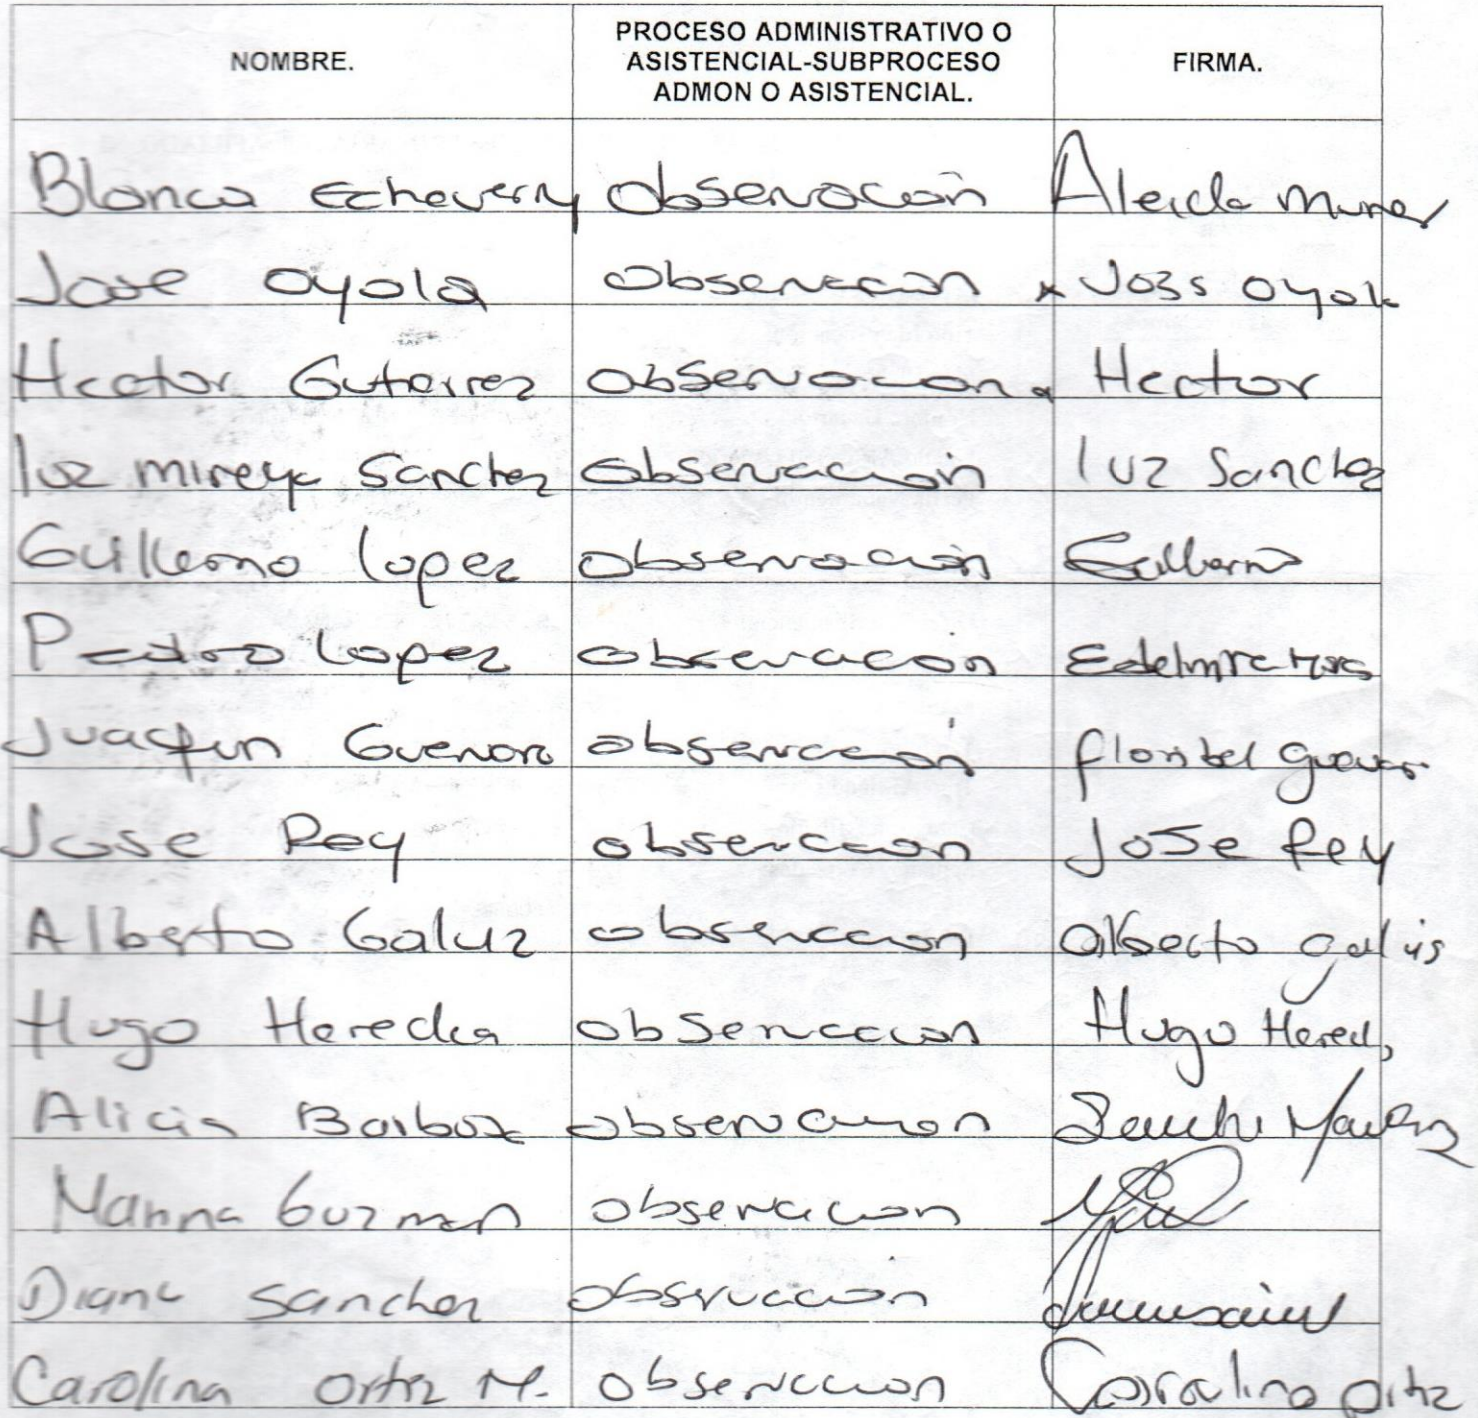 NOMBRE. PROCESO ADMINISTRATIVO O ASISTENCIAL-SUBPROCESO ADMON O ASISTENCIAL. FIRMA.
Blanca Echeverry observación Aleida
Jose Oyola observacion x Joss Oyola
Hector Gutierrez observacion x Hector
luz mireya Sanchez observación luz Sanchez
Guillermo lopez observación Guillermo
Pedro Lopez observación
Juaqun observación floribel
Jose Rey observacion Jose Rey
Alberto Galuz observacion alberto galuis
Hugo Heredia observacion Hugo
Alicia observacion
Marina Guzman observacion
Diana Sanchez observacion
Carolina Ortiz M. observacion Carolina Ortiz